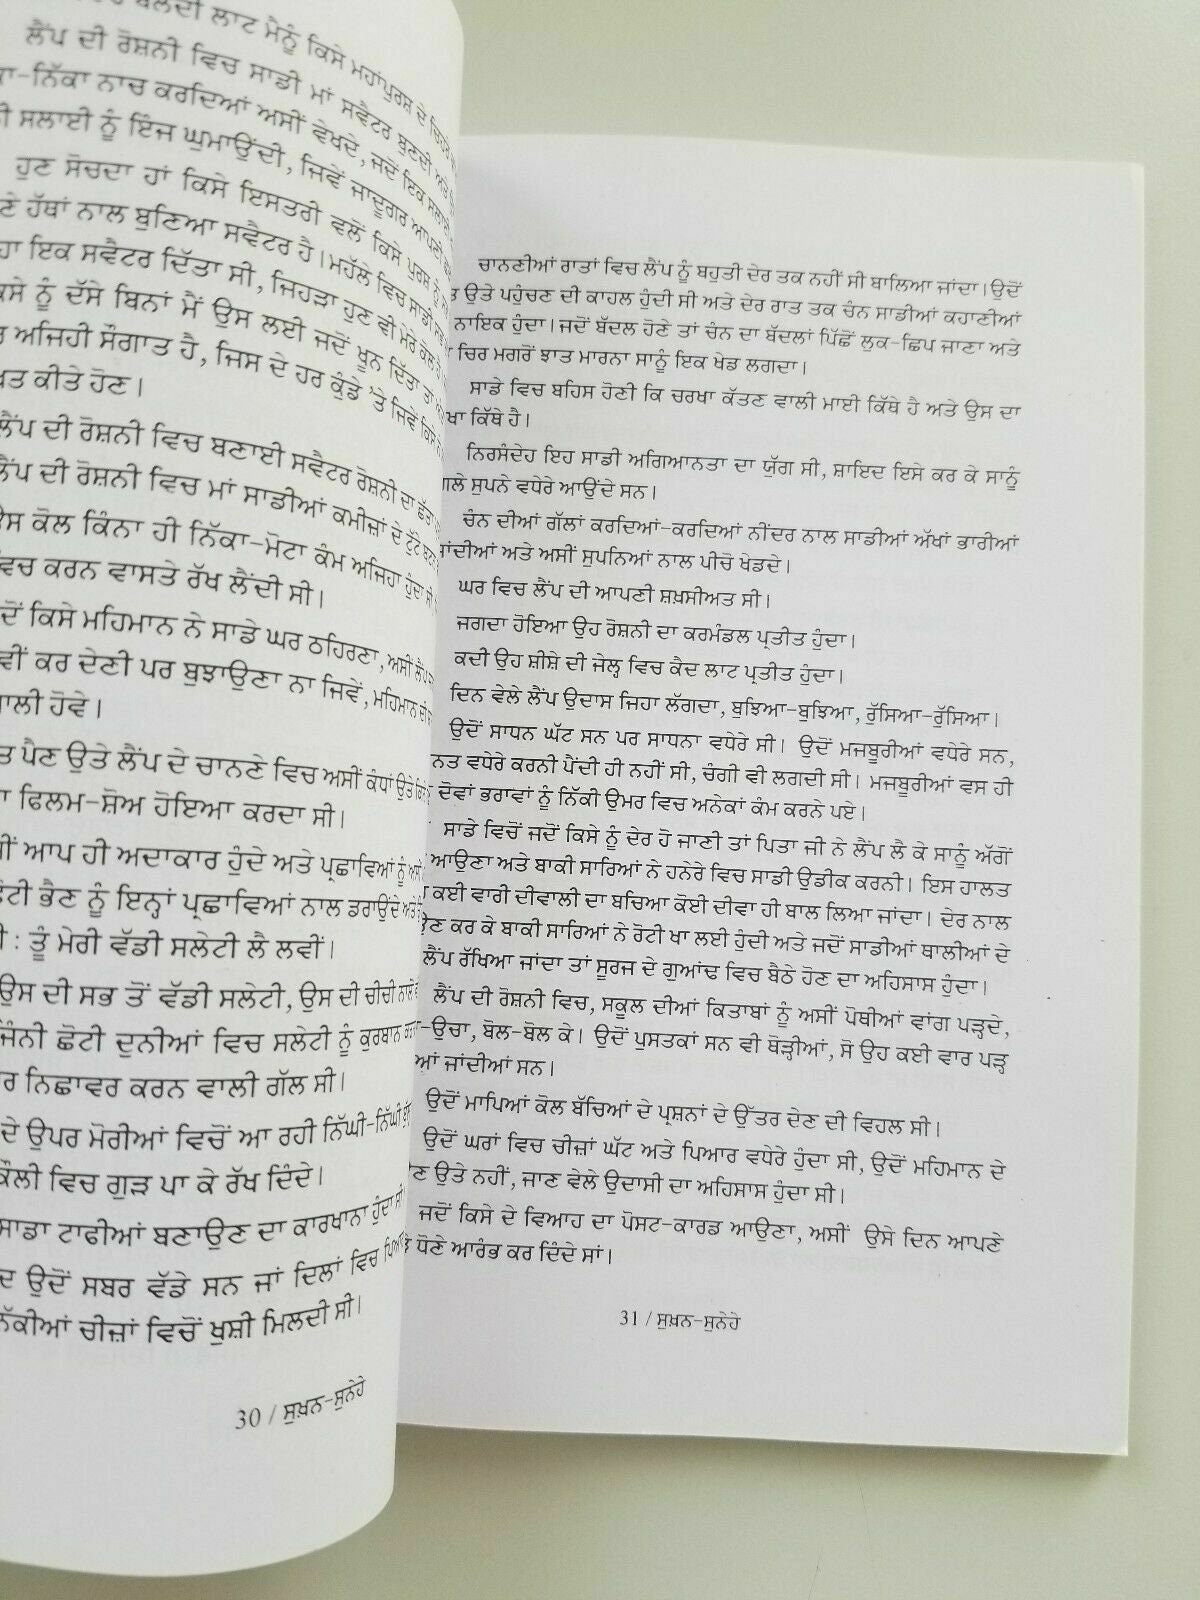 ਬਲਦੀ ਲਾਟ ਮੈਨੂੰ ਕਿਸੇ ਮਹਾਂਪੁਰਸ਼ ਦੇ
ਲੈਂਪ ਦੀ ਰੋਸ਼ਨੀ ਵਿਚ ਸਾਡੀ ਮਾਂ ਸਵੈਟਰ ਬੁਣਦੀ ਅਤੇ
ਨਿੱਕਾ ਨਾਚ ਕਰਦਿਆਂ ਅਸੀਂ ਵੇਖਦੇ, ਜਦੋਂ ਇਕ
ਸਲਾਈ ਨੂੰ ਇੰਜ ਘੁਮਾਉਂਦੀ, ਜਿਵੇਂ ਜਾਦੂਗਰ ਆਪਣੀ
ਹੁਣ ਸੋਚਦਾ ਹਾਂ ਕਿਸੇ ਇਸਤਰੀ ਵਲੋਂ ਕਿਸੇ ਪੁਰਸ਼ ਨੂੰ
ਹੱਥਾਂ ਨਾਲ ਬੁਣਿਆ ਸਵੈਟਰ ਹੈ। ਮਹੱਲੇ ਵਿਚ ਸਾਡੀ
ਇਕ ਸਵੈਟਰ ਦਿੱਤਾ ਸੀ, ਜਿਹੜਾ ਹੁਣ ਵੀ ਮੇਰੇ ਕੋਲ
ਨੂੰ ਦੱਸੇ ਬਿਨਾਂ ਮੈਂ ਉਸ ਲਈ ਜਦੋਂ ਖ਼ੂਨ ਦਿੱਤਾ ਤਾਂ
ਅਜਿਹੀ ਸੌਗਾਤ ਹੈ, ਜਿਸ ਦੇ ਹਰ ਕੁੰਡੇ 'ਤੇ ਜਿਵੇਂ ਕਿਸੇ
ਕੀਤੇ ਹੋਣ।
ਲੈਂਪ ਦੀ ਰੋਸ਼ਨੀ ਵਿਚ ਬਣਾਈ ਸਵੈਟਰ ਰੋਸ਼ਨੀ ਦਾ
ਲੈਂਪ ਦੀ ਰੋਸ਼ਨੀ ਵਿਚ ਮਾਂ ਸਾਡੀਆਂ ਕਮੀਜ਼ਾਂ ਦੇ ਟੁੱਟੇ
ਕੋਲ ਕਿੰਨਾ ਹੀ ਨਿੱਕਾ-ਮੋਟਾ ਕੰਮ ਅਜਿਹਾ ਹੁੰਦਾ ਸੀ
ਕਰਨ ਵਾਸਤੇ ਰੱਖ ਲੈਂਦੀ ਸੀ।
ਕਿਸੇ ਮਹਿਮਾਨ ਨੇ ਸਾਡੇ ਘਰ ਠਹਿਰਣਾ, ਅਸੀਂ ਲੈਂਪ
ਕਰ ਦੇਣੀ ਪਰ ਬੁਝਾਉਣਾ ਨਾ ਜਿਵੇਂ, ਮਹਿਮਾਨ
ਹੋਵੇ।
ਪੈਣ ਉਤੇ ਲੈਂਪ ਦੇ ਚਾਨਣੇ ਵਿਚ ਅਸੀਂ ਕੰਧਾਂ ਉਤੇ
ਫਿਲਮ-ਸ਼ੋਅ ਹੋਇਆ ਕਰਦਾ ਸੀ।
ਆਪ ਹੀ ਅਦਾਕਾਰ ਹੁੰਦੇ ਅਤੇ ਪ੍ਰਛਾਵਿਆਂ ਨੂੰ
ਭੈਣ ਨੂੰ ਇਨ੍ਹਾਂ ਪ੍ਰਛਾਵਿਆਂ ਨਾਲ ਡਰਾਉਂਦੇ
: ਤੂੰ ਮੇਰੀ ਵੱਡੀ ਸਲੇਟੀ ਲੈ ਲਵੀਂ।
ਉਸ ਦੀ ਸਭ ਤੋਂ ਵੱਡੀ ਸਲੇਟੀ, ਉਸ ਦੀ ਚੀਚੀ ਨਾਲੋਂ
ਛੋਟੀ ਦੁਨੀਆਂ ਵਿਚ ਸਲੇਟੀ ਨੂੰ ਕੁਰਬਾਨ
ਨਿਛਾਵਰ ਕਰਨ ਵਾਲੀ ਗੱਲ ਸੀ।
ਦੇ ਉਪਰ ਮੋਰੀਆਂ ਵਿਚੋਂ ਆ ਰਹੀ ਨਿੱਘੀ-ਨਿੱਘੀ
ਕੌਲੀ ਵਿਚ ਗੁੜ ਪਾ ਕੇ ਰੱਖ ਦਿੰਦੇ।
ਸਾਡਾ ਟਾਫੀਆਂ ਬਣਾਉਣ ਦਾ ਕਾਰਖਾਨਾ ਹੁੰਦਾ ਸੀ
ਉਦੋਂ ਸਬਰ ਵੱਡੇ ਸਨ ਜਾਂ ਦਿਲਾਂ ਵਿਚ
ਚੀਜ਼ਾਂ ਵਿਚੋਂ ਖੁਸ਼ੀ ਮਿਲਦੀ ਸੀ।
30 / ਸੁਖ਼ਨ-ਸੁਨੇਹੇ
ਚਾਨਣੀਆਂ ਰਾਤਾਂ ਵਿਚ ਲੈਂਪ ਨੂੰ ਬਹੁਤੀ ਦੇਰ ਤਕ ਨਹੀਂ ਸੀ ਬਾਲਿਆ ਜਾਂਦਾ। ਉਦੋਂ
ਉਤੇ ਪਹੁੰਚਣ ਦੀ ਕਾਹਲ ਹੁੰਦੀ ਸੀ ਅਤੇ ਦੇਰ ਰਾਤ ਤਕ ਚੰਨ ਸਾਡੀਆਂ ਕਹਾਣੀਆਂ
ਨਾਇਕ ਹੁੰਦਾ। ਜਦੋਂ ਬੱਦਲ ਹੋਣੇ ਤਾਂ ਚੰਨ ਦਾ ਬੱਦਲਾਂ ਪਿੱਛੋਂ ਲੁਕ-ਛਿਪ ਜਾਣਾ ਅਤੇ
ਚਿਰ ਮਗਰੋਂ ਝਾਤ ਮਾਰਨਾ ਸਾਨੂੰ ਇਕ ਖੇਡ ਲਗਦਾ।
ਸਾਡੇ ਵਿਚ ਬਹਿਸ ਹੋਣੀ ਕਿ ਚਰਖਾ ਕੱਤਣ ਵਾਲੀ ਮਾਈ ਕਿੱਥੇ ਹੈ ਅਤੇ ਉਸ ਦਾ
ਕਿੱਥੇ ਹੈ।
ਨਿਰਸੰਦੇਹ ਇਹ ਸਾਡੀ ਅਗਿਆਨਤਾ ਦਾ ਯੁੱਗ ਸੀ, ਸ਼ਾਇਦ ਇਸੇ ਕਰ ਕੇ ਸਾਨੂੰ
ਸੁਪਨੇ ਵਧੇਰੇ ਆਉਂਦੇ ਸਨ।
ਚੰਨ ਦੀਆਂ ਗੱਲਾਂ ਕਰਦਿਆਂ-ਕਰਦਿਆਂ ਨੀਂਦਰ ਨਾਲ ਸਾਡੀਆਂ ਅੱਖਾਂ ਭਾਰੀਆਂ
ਅਤੇ ਅਸੀਂ ਸੁਪਨਿਆਂ ਨਾਲ ਪੀਚੋ ਖੇਡਦੇ।
ਘਰ ਵਿਚ ਲੈਂਪ ਦੀ ਆਪਣੀ ਸ਼ਖ਼ਸੀਅਤ ਸੀ।
ਜਗਦਾ ਹੋਇਆ ਉਹ ਰੋਸ਼ਨੀ ਦਾ ਕਰਮੰਡਲ ਪ੍ਰਤੀਤ ਹੁੰਦਾ।
ਕਦੀ ਉਹ ਸ਼ੀਸ਼ੇ ਦੀ ਜੇਲ੍ਹ ਵਿਚ ਕੈਦ ਲਾਟ ਪ੍ਰਤੀਤ ਹੁੰਦਾ।
ਦਿਨ ਵੇਲੇ ਲੈਂਪ ਉਦਾਸ ਜਿਹਾ ਲੱਗਦਾ, ਬੁਝਿਆ-ਬੁਝਿਆ, ਰੁੱਸਿਆ-ਰੁੱਸਿਆ।
ਉਦੋਂ ਸਾਧਨ ਘੱਟ ਸਨ ਪਰ ਸਾਧਨਾ ਵਧੇਰੇ ਸੀ। ਉਦੋਂ ਮਜਬੂਰੀਆਂ ਵਧੇਰੇ ਸਨ,
ਵਧੇਰੇ ਕਰਨੀ ਪੈਂਦੀ ਹੀ ਨਹੀਂ ਸੀ, ਚੰਗੀ ਵੀ ਲਗਦੀ ਸੀ। ਮਜਬੂਰੀਆਂ ਵਸ ਹੀ
ਦੋਵਾਂ ਭਰਾਵਾਂ ਨੂੰ ਨਿੱਕੀ ਉਮਰ ਵਿਚ ਅਨੇਕਾਂ ਕੰਮ ਕਰਨੇ ਪਏ।
ਸਾਡੇ ਵਿਚੋਂ ਜਦੋਂ ਕਿਸੇ ਨੂੰ ਦੇਰ ਹੋ ਜਾਣੀ ਤਾਂ ਪਿਤਾ ਜੀ ਨੇ ਲੈਂਪ ਲੈ ਕੇ ਸਾਨੂੰ ਅੱਗੋਂ
ਆਉਣਾ ਅਤੇ ਬਾਕੀ ਸਾਰਿਆਂ ਨੇ ਹਨੇਰੇ ਵਿਚ ਸਾਡੀ ਉਡੀਕ ਕਰਨੀ। ਇਸ ਹਾਲਤ
ਕਈ ਵਾਰੀ ਦੀਵਾਲੀ ਦਾ ਬਚਿਆ ਕੋਈ ਦੀਵਾ ਹੀ ਬਾਲ ਲਿਆ ਜਾਂਦਾ। ਦੇਰ ਨਾਲ
ਕਰ ਕੇ ਬਾਕੀ ਸਾਰਿਆਂ ਨੇ ਰੋਟੀ ਖਾ ਲਈ ਹੁੰਦੀ ਅਤੇ ਜਦੋਂ ਸਾਡੀਆਂ ਥਾਲੀਆਂ ਦੇ
ਲੈਂਪ ਰੱਖਿਆ ਜਾਂਦਾ ਤਾਂ ਸੂਰਜ ਦੇ ਗੁਆਂਢ ਵਿਚ ਬੈਠੇ ਹੋਣ ਦਾ ਅਹਿਸਾਸ ਹੁੰਦਾ।
ਲੈਂਪ ਦੀ ਰੋਸ਼ਨੀ ਵਿਚ, ਸਕੂਲ ਦੀਆਂ ਕਿਤਾਬਾਂ ਨੂੰ ਅਸੀਂ ਪੋਥੀਆਂ ਵਾਂਗ ਪੜ੍ਹਦੇ,
-ਉਚਾ, ਬੋਲ-ਬੋਲ ਕੇ। ਉਦੋਂ ਪੁਸਤਕਾਂ ਸਨ ਵੀ ਥੋੜ੍ਹੀਆਂ, ਸੋ ਉਹ ਕਈ ਵਾਰ ਪੜ੍ਹ
ਜਾਂਦੀਆਂ ਸਨ।
ਉਦੋਂ ਮਾਪਿਆਂ ਕੋਲ ਬੱਚਿਆਂ ਦੇ ਪ੍ਰਸ਼ਨਾਂ ਦੇ ਉੱਤਰ ਦੇਣ ਦੀ ਵਿਹਲ ਸੀ।
ਉਦੋਂ ਘਰਾਂ ਵਿਚ ਚੀਜ਼ਾਂ ਘੱਟ ਅਤੇ ਪਿਆਰ ਵਧੇਰੇ ਹੁੰਦਾ ਸੀ, ਉਦੋਂ ਮਹਿਮਾਨ ਦੇ
ਉਤੇ ਨਹੀਂ, ਜਾਣ ਵੇਲੇ ਉਦਾਸੀ ਦਾ ਅਹਿਸਾਸ ਹੁੰਦਾ ਸੀ।
ਜਦੋਂ ਕਿਸੇ ਦੇ ਵਿਆਹ ਦਾ ਪੋਸਟ-ਕਾਰਡ ਆਉਣਾ, ਅਸੀਂ ਉਸੇ ਦਿਨ ਆਪਣੇ
ਧੋਣੇ ਆਰੰਭ ਕਰ ਦਿੰਦੇ ਸਾਂ।
31 / ਸੁਖ਼ਨ-ਸੁਨੇਹੇ